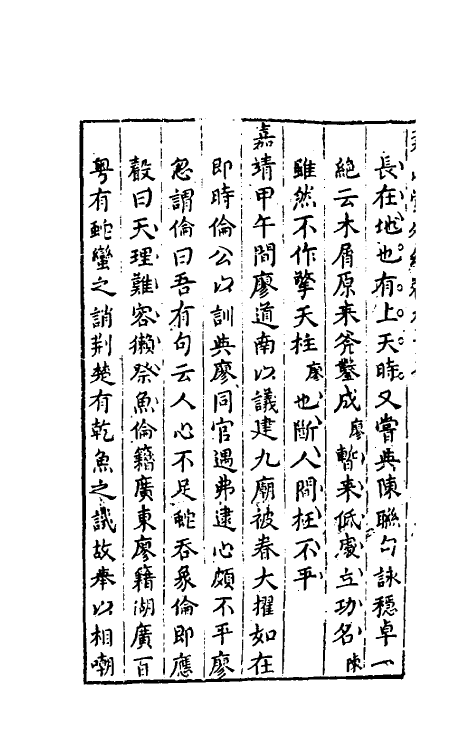 長在地也有上天時又嘗與陳聯句詠穩卓一
絕云木屑原来斧鑿成廖暫来低處立功名陳
雖然不作擎天柱廖也斷人間枉不平
嘉靖甲午間廖道南以議建九廟被眷大擢如在
即時倫公以訓與廖同官遇弗逮心頗不平廖
忽謂倫曰吾有句云人心不足蛇吞象倫即應
聲曰天理難容獺祭魚倫籍廣東廖籍湖廣百
粤有蛇蠻之誚荆楚有乾魚之譏故奉以相嘲